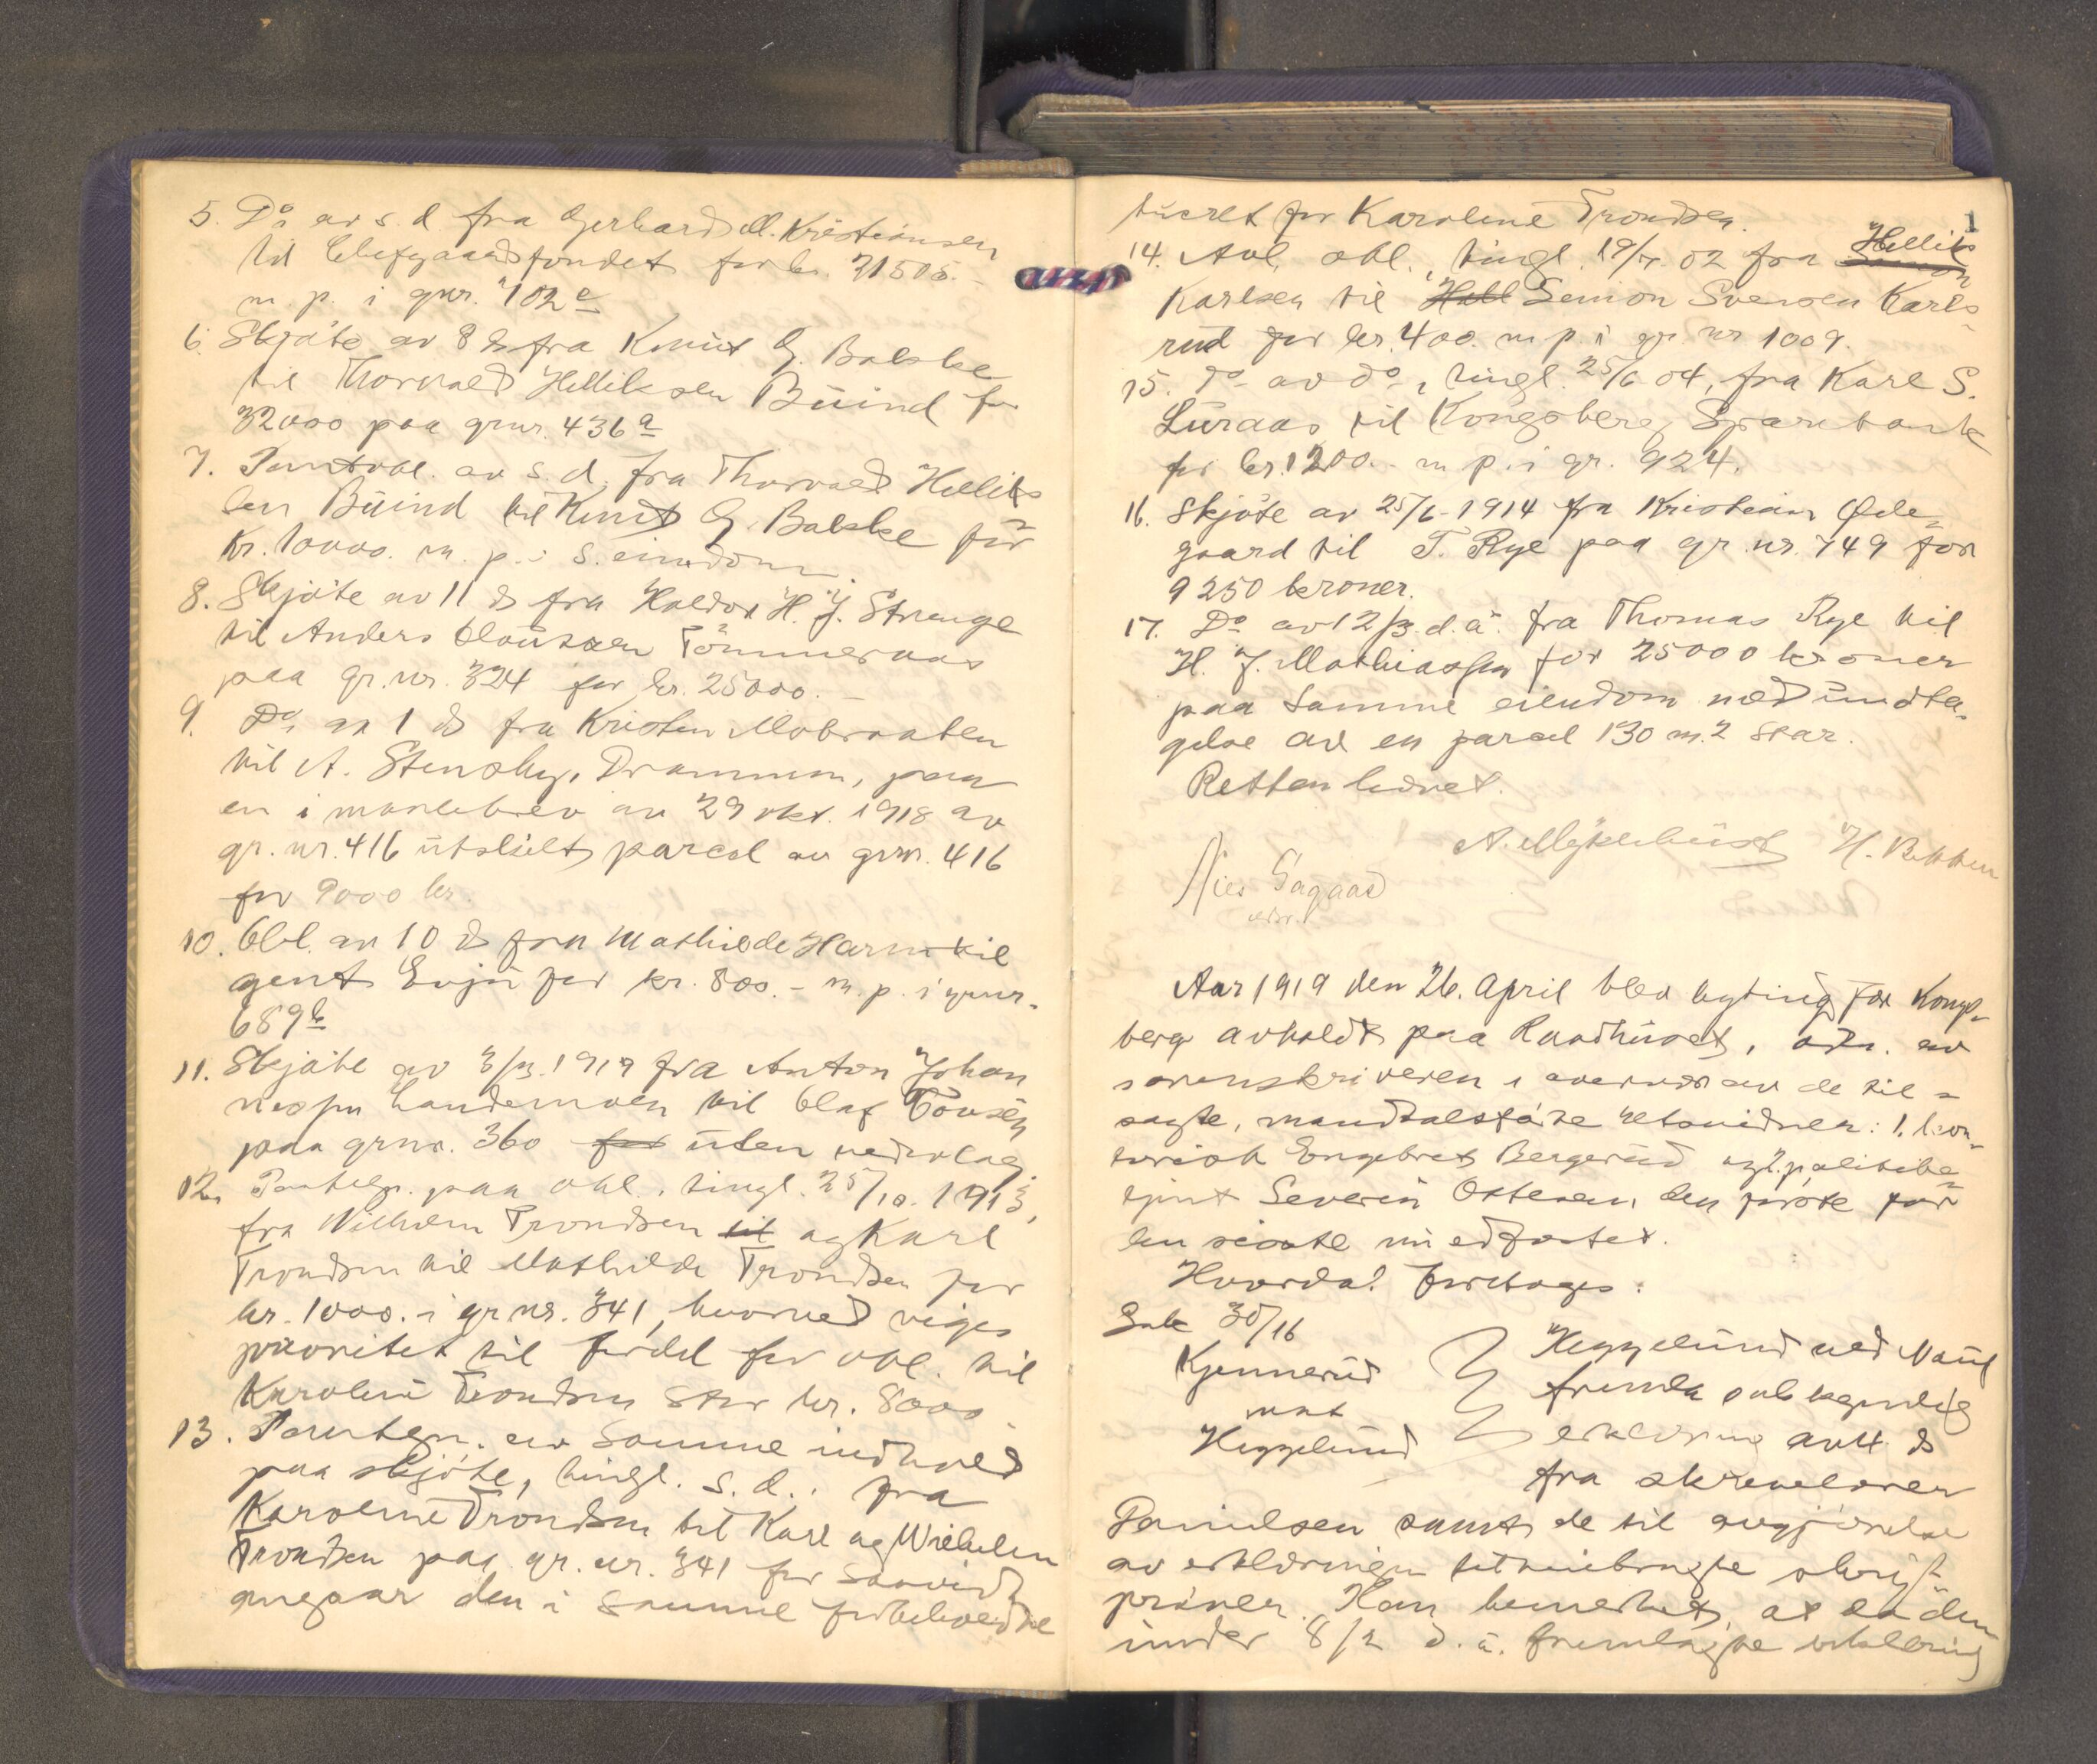 5. Do av s. d. fra Gerhard M. Kristiansen
til Chefgaardsfondet for kr. 21505.-
m. p. i gnr. 102 e
6. Skjöte av 8 ds fra Knut G. Bakke
til Thorvald Helliksen Buind for
32000 paa grnr. 436 a
7. Pantobl. av s. d. fra Thorvald Hellik-
sen Buind til Knut G. Bakke for
Kr. 10000. m. p. i s. eiendom.
8. Skjöte av 11 ds fra Haldor H. J. Strenge
til Anders Clausen Tömmeraas
paa gr. nr. 324 for kr. 25000.-
9. Do av 1 ds fra Kristen Mobraaten
til A. Stensby, Drammen, paa
en i maalebrev av 29 okt. 1918 av
gr. nr. 416 utskilt parcel av grnr. 416
for 9000 kr.
10. Obl. av 10 ds fra Mathilde Harm til
gent Evju for kr. 800.- m. p. i grnr.
689 b
11. Skjöte av 3/3. 1919 fra Anton Johan
nessen Landemoen til Olaf
paa grnr. 360 for uten vederlag
12. Pantefr. paa obl., tingl. 25/10. 1913,
fra Wilhelm Trondsen til og Karl
Trondsen til Mathilde Trondsen for
kr. 1000. i gr nr. 341, hvorved viges
prioritet til fordel for obl. til
Karoline Trondsen stor kr. 8000.
13. av samme indhold
paa skjöte, tingl. s. d., fra
Karoline Trondsen til Karl og Wilhelm
Trondsen paa gr. nr. 341 for saavidt
angaar den i samme forbeholdne
for Karoline Trondsen.
1
14. Avl. obl., tingl. 19/4. 02 fra Simon Hellik
Karlsen til Hell Semon Svensen Karls-
rud for kr. 400. m p. i gr. nr 1009.
15. Do av do, tingl. 25/6 04, fra Karl S.
Luraas til Kongsberg Sparebank
for kr. 1200.- m p. i gr. 924.
16. Skjöte av 25/6 1914 fra Kristian Öde-
gaard til T. Rye paa gr. nr. 749 for
9250 kroner.
17. Do av 12/3. d. å. fra Thomas Rye til
H. J. Mathiassen for 25000 kroner
paa samme eiendom med undta-
gelse av en parcel 130 m.2 stor.
Retten hævet.
A. Myklebust H. Bekken
Nies Sagaas
Aar 1919 den 26. April blev byting for Kongs-
berg avholdt paa Raadhuset, adm. av
sorenskriveren i overvær av de til-
sagte, mandtalsförte retsvidner: 1. kon-
torist Engebret Bergerud og 2. politibe-
tjent Severin Ostesen, den förste for
den sidste nu edfæstet.
Hvorda! foretoges:
Sak 30/16
Kjennerud
mot
Heggelund
Heggelund ved Nauf
fremla sakkyndig
erklæring av 14 ds
fra skrevelærer
Danielsen samt de til avgjörelse
av erklæringen tilveiebragte skrift-
pröver. Han bemerket, at da den
under 8/2 d. å. fremlagte erklæring